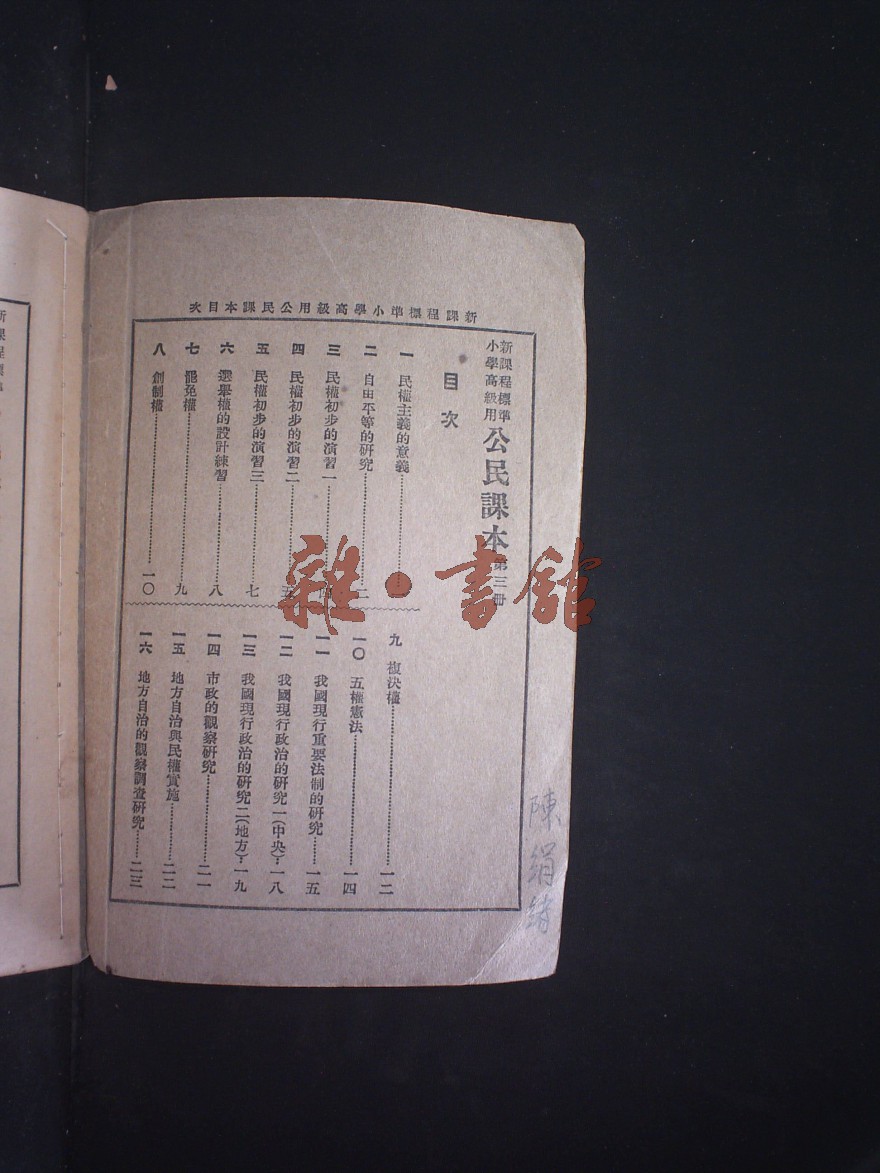 新課程標準小學高級用公民課本目次
新課程標準
小學高級用
公民課本 第三冊
目次
一 民權主義的意義
二 自由平等的研究 二
三 民權初步的演習一 四
四 民權初步的演習二 五
五 民權初步的演習三 七
六 選舉權的設計練習 八
七 罷免權 九
八 創制權 一〇
九 複決權 一二
一〇 五權憲法 一四
一一 我國現行重要法制的研究 一五
一二 我國現行政治的研究一(中央) 一八
一三 我國現行政治的研究二(地方) 一九
一四 市政的觀察研究 二一
一五 地方自治與民權實施 二二
一六 地方自治的觀察調查研究 二三
陳絹
雜·書館
新課程標準